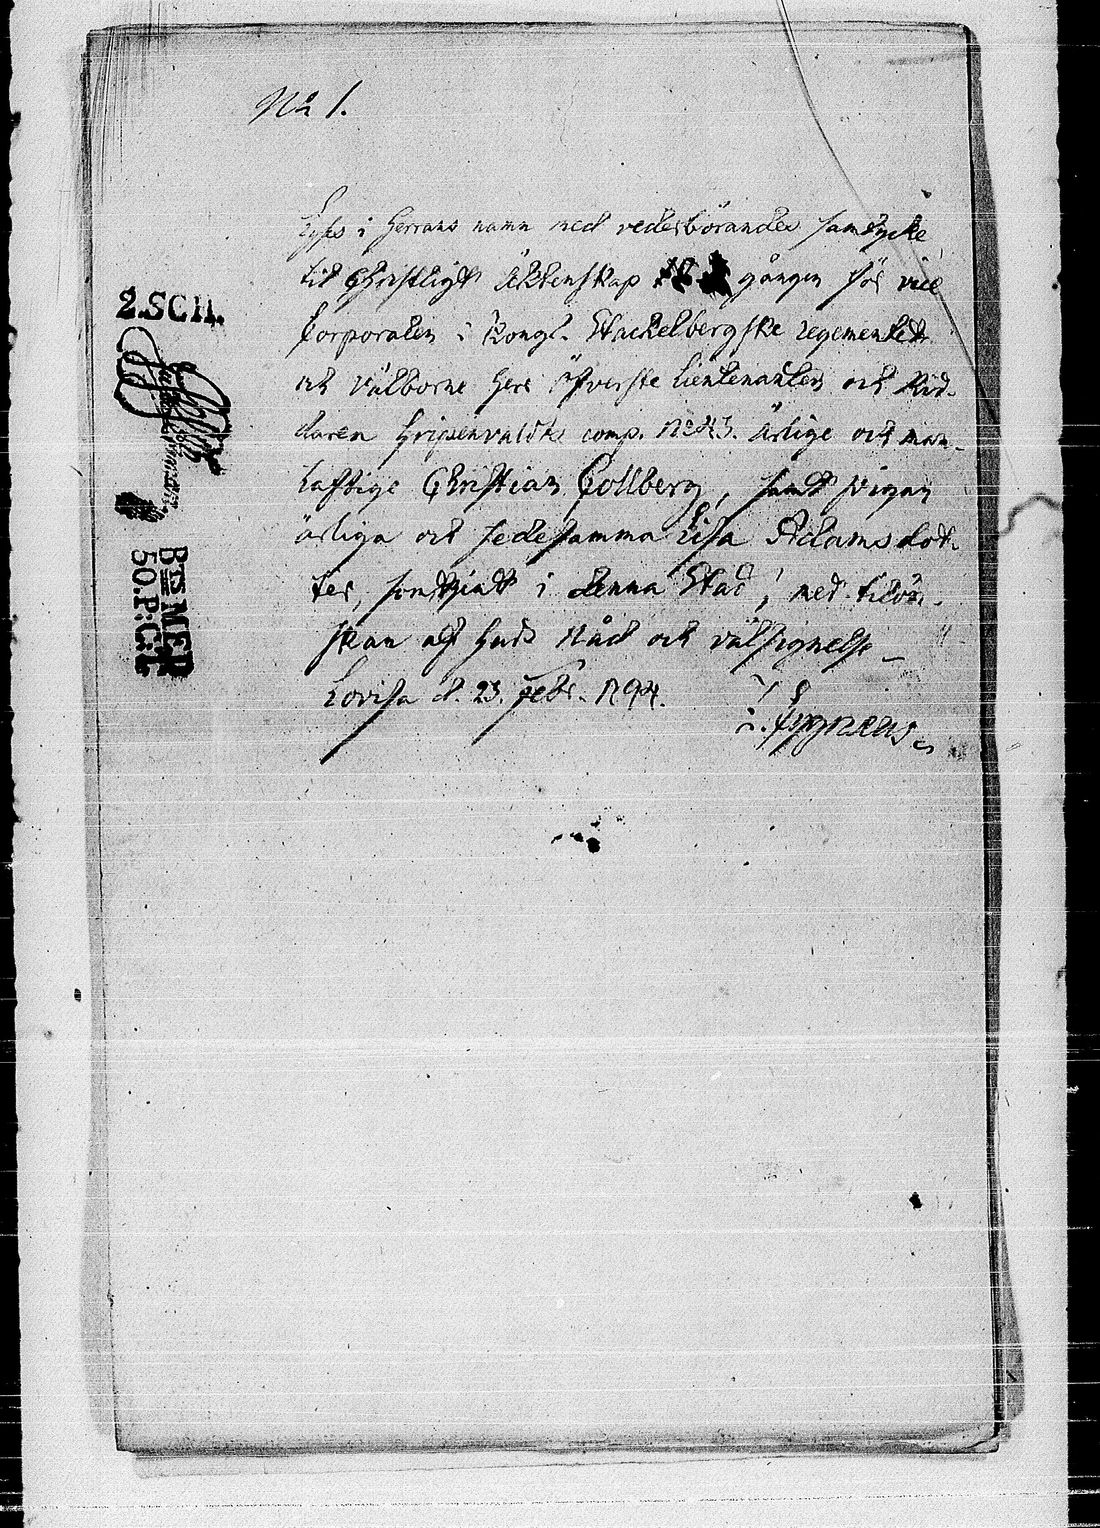 No 1.
Lyses i Herrans namn med vederbörandes samtycke
til Christligt Äktenskap gången för vice
Corporalen i Kongl. Stackelbergske regementet
och Välborne Herr Öfverste Lieutenanten och Rid-
daren Gripenvaldts comp. No 43. ärlige och man-
haftige Christian Collberg, samt pigan
ärliga och sedesamma Lisa Adamsdot-
ter, i denna Stad, med tilön-
skan af Guds Nåd och välsignelse
Lovisa d. 23. Febr. 1794.
Cygnæus
2.SCH.
BTSMER
50.P:C:T